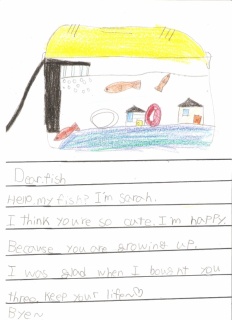 Dear.fish
Hello my fish? I'm sarah.
I think you're so cute. I'm happy.
Because you are growing up.
I was glad when I bought you
three. Keep your life~♡
Bye~